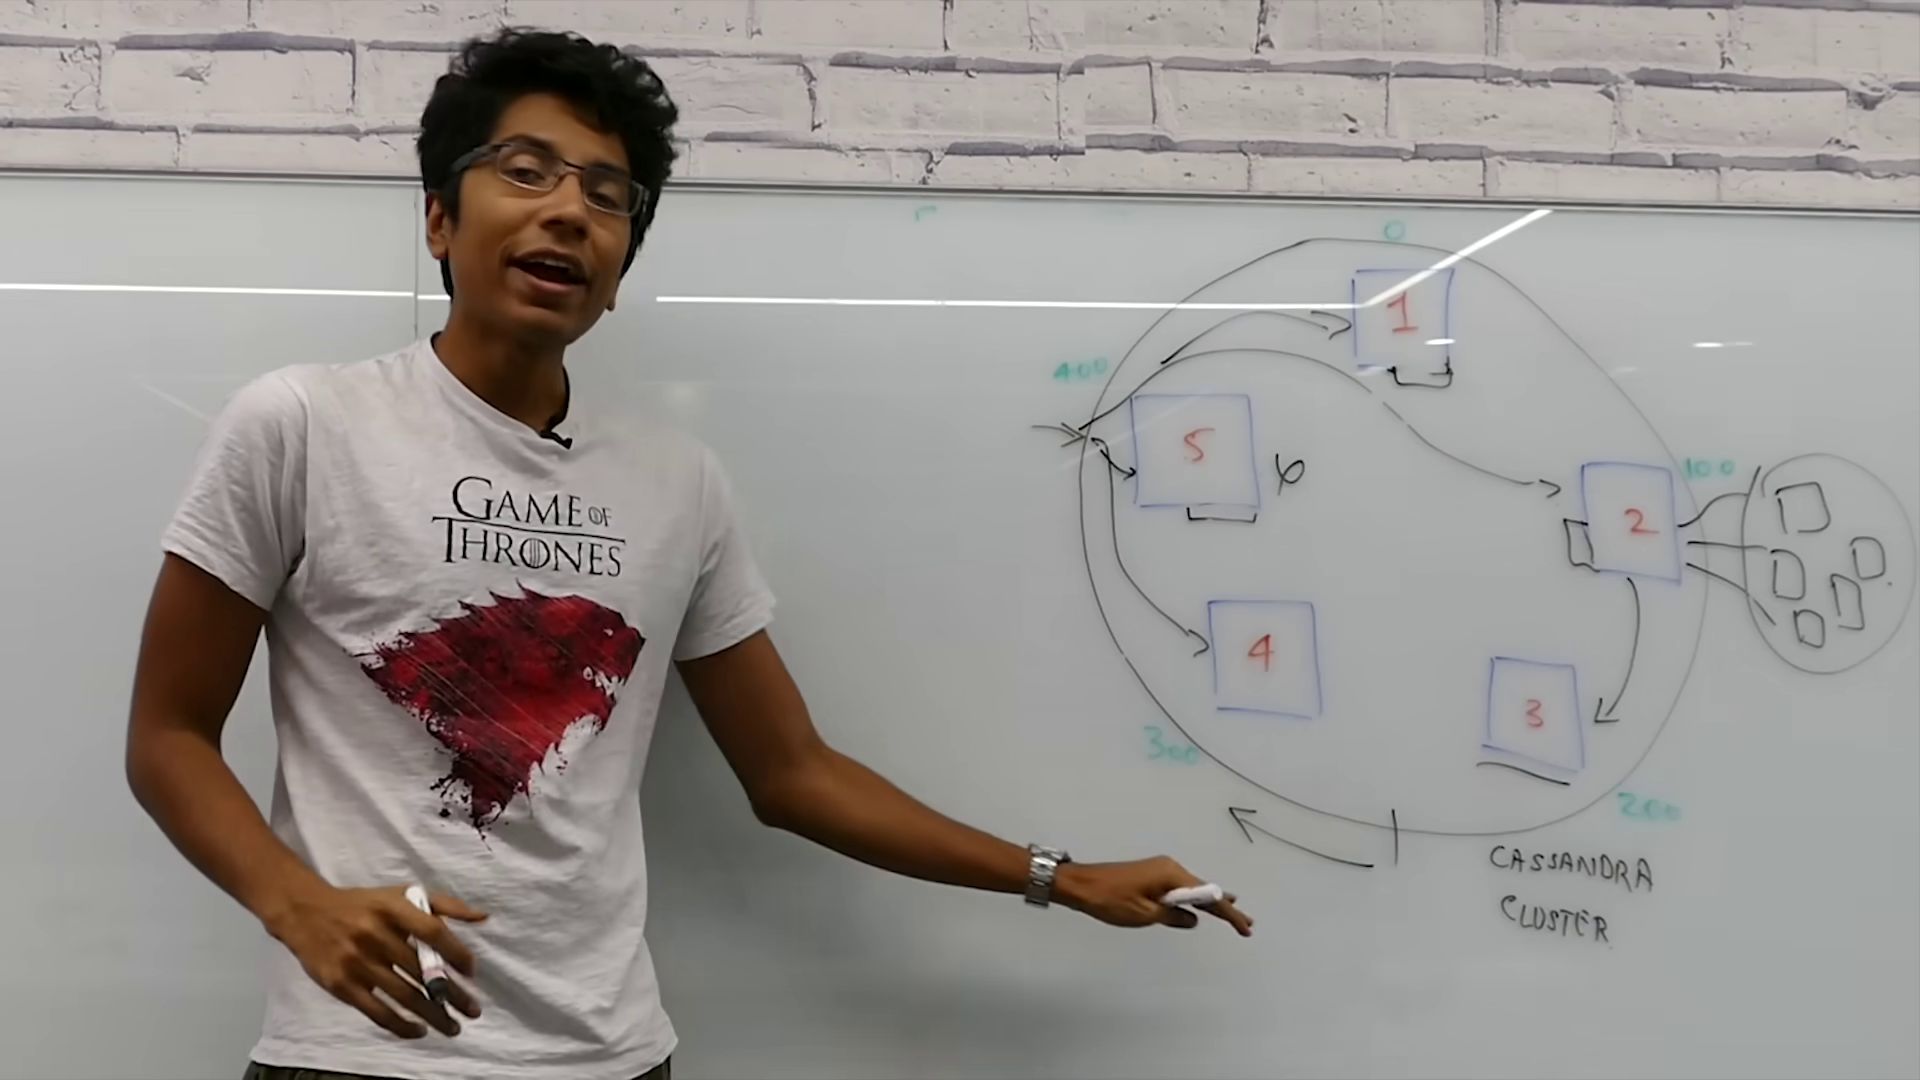 GAME OF
THRONES
0
1
400
5
6
100
2
4
3
300
200
CASSANDRA
CLUSTER